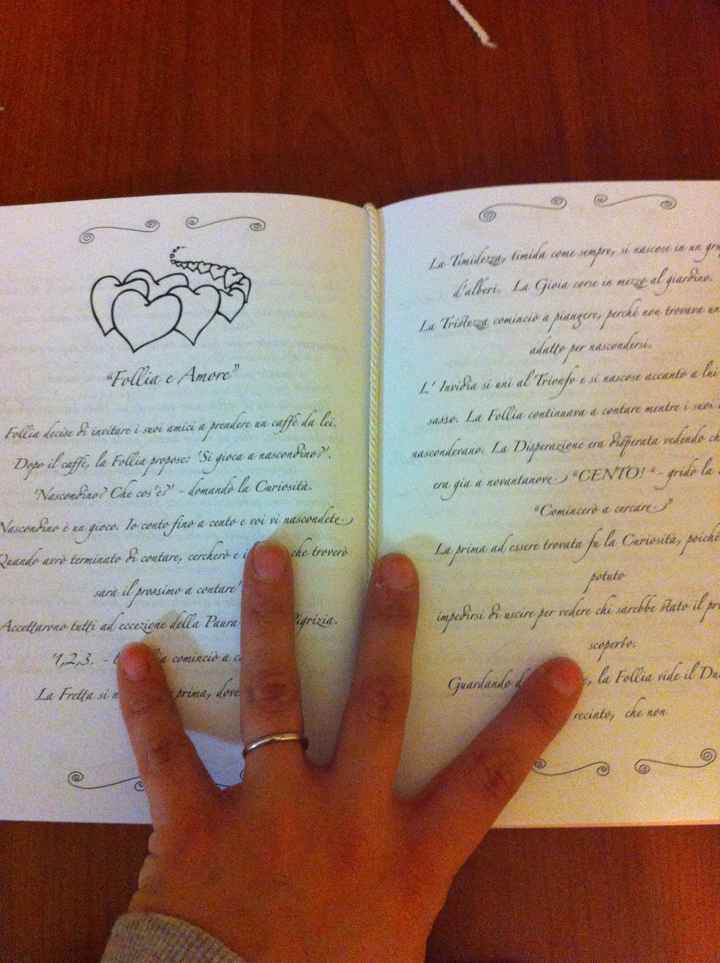 "Follia e Amore"
Follia decise di invitare i suoi amici a prendere un caffè da lei.
Dopo il caffè, la Follia propose: 'Si gioca a nascondino?'.
'Nascondino? Che cos'è?' - domandò la Curiosità.
Nascondino è un gioco. Io conto fino a cento e voi vi nascondete
Quando avrò terminato di contare, cercherò e che troverò
sarà il prossimo a contare'
Accettarono tutti ad eccezione della Paura Pigrizia.
'1,2,3. - cominciò a
La Fretta si prima, dove
La Timidezza, timida come sempre, si nascose in un
d'alberi. La Gioia corse in mezzo al giardino.
La Tristezza cominciò a piangere, perché non trovava un
adatto per nascondersi.
L' Invidia si unì al Trionfo e si nascose accanto a lui
sasso. La Follia continuava a contare mentre i suoi
nascondevano. La Disperazione era disperata vedendo
era già a novantanove "CENTO! " - gridò la
"Comincerò a cercare "
La prima ad essere trovata fu la Curiosità, poiché
potuto
impedirsi di uscire per vedere chi sarebbe stato il
scoperto.
Guardando la Follia vide il
recinto, che non